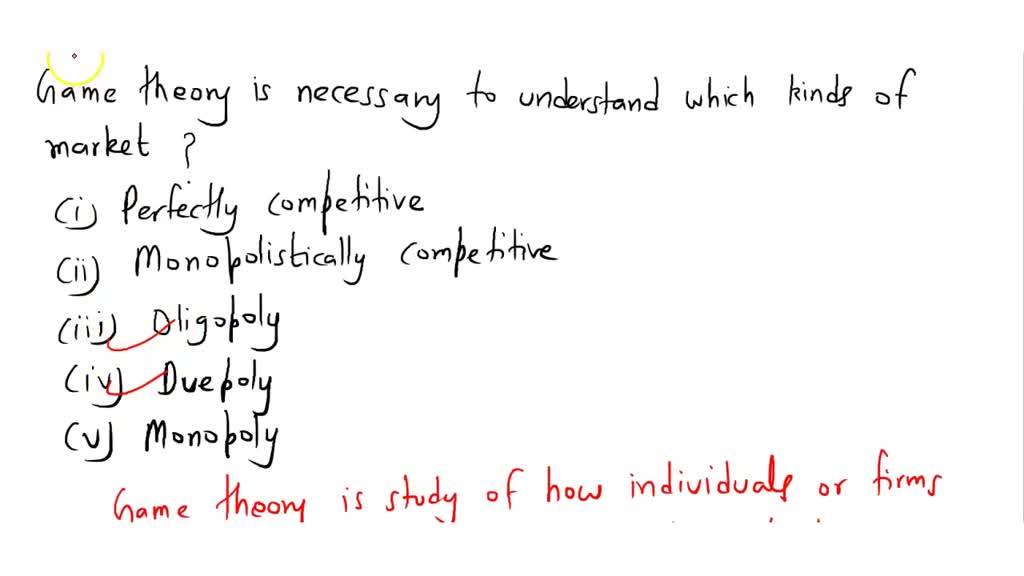 Game theory is necessary to understand which kinds of
market ?
(i) Perfectly competitive
(ii) Monopolistically competitive
(iii) Oligopoly
(iv) Duepoly
(v) Monopoly
Game theory is study of how individuals or firms